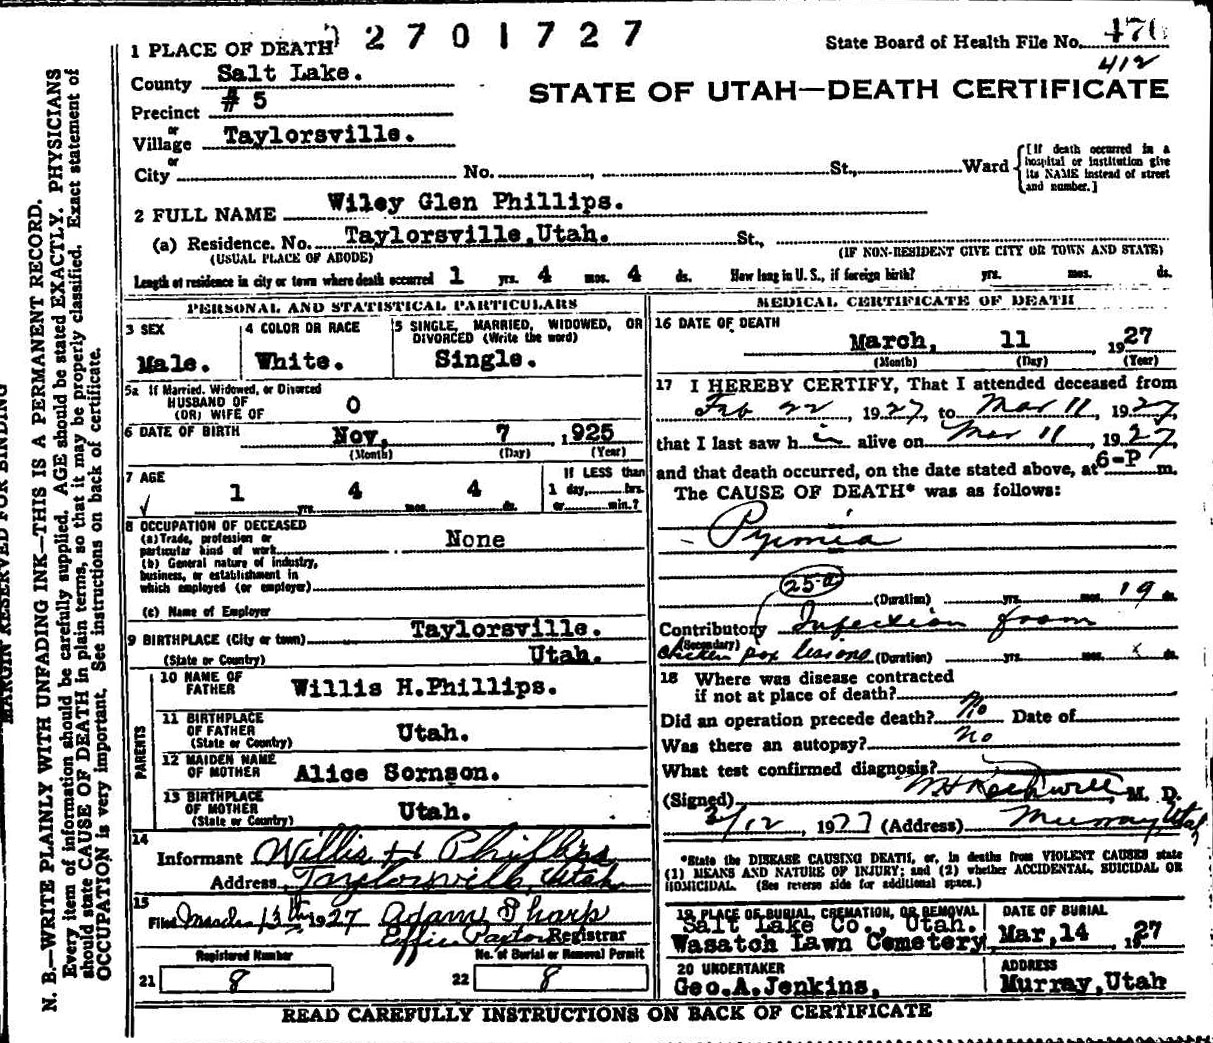 2701727
1 PLACE OF DEATH
State Board of Health File No. 476
412
County Salt Lake.
STATE OF UTAH—DEATH CERTIFICATE
Precinct # 5
or
Village Taylorsville.
or
City No. , St., Ward
[If death occurred in a hospital or institution give its NAME instead of street and number.]
2 FULL NAME Wiley Glen Phillips.
(a) Residence. No. Taylorsville,Utah. St.,
(USUAL PLACE OF ABODE) (IF NON-RESIDENT GIVE CITY OR TOWN AND STATE)
Length of residence in city or town where death occurred 1 yrs. 4 mos. 4 ds. How long in U. S., if foreign birth? yrs. mos. ds.
PERSONAL AND STATISTICAL PARTICULARS
3 SEX
Male.
4 COLOR OR RACE
White.
5 SINGLE, MARRIED, WIDOWED, OR
DIVORCED (Write the word)
Single.
5a If Married, Widowed, or Divorced
HUSBAND OF
(OR) WIFE OF O
6 DATE OF BIRTH Nov, 7 , 1925
(Month) (Day) (Year)
7 AGE
1 yrs. 4 mos. 4 ds.
IF LESS than
1 day, hrs.
or min.?
8 OCCUPATION OF DECEASED
(a) Trade, profession or
particular kind of work None
(b) General nature of industry,
business, or establishment in
which employed (or employer)
(c) Name of Employer
9 BIRTHPLACE (City or town) Taylorsville.
(State or Country) Utah.
PARENTS
10 NAME OF
FATHER Willis H.Phillips.
11 BIRTHPLACE
OF FATHER
(State or Country) Utah.
12 MAIDEN NAME
OF MOTHER Alice Sornson.
13 BIRTHPLACE
OF MOTHER
(State or Country) Utah.
14
Informant Willis H Phillips
Address Taylorsville, Utah
15
Filed March 13th 1927 Adam Sharp
Registrar
Registered Number No. of Burial or Removal Permit
21 8 22 8
MEDICAL CERTIFICATE OF DEATH
16 DATE OF DEATH
March, 11 , 1927
(Month) (Day) (Year)
17 I HEREBY CERTIFY, That I attended deceased from
Feb 22 , 1927, to Mar 11, 1927,
that I last saw h im alive on Mar 11 , 1927,
and that death occurred, on the date stated above, at 6-P m.
The CAUSE OF DEATH* was as follows:
Pyimia
25-a
(Duration) yrs. mos. 19 ds.
Contributory Infection from
(Secondary)
chicken pox lessions (Duration) yrs. mos. x ds.
18 Where was disease contracted
if not at place of death?
Did an operation precede death? No Date of
Was there an autopsy? No
What test confirmed diagnosis?
(Signed) M. D.
3/12 , 1927 (Address) Murray, Utah
*State the DISEASE CAUSING DEATH, or, in deaths from VIOLENT CAUSES state
(1) MEANS AND NATURE OF INJURY; and (2) whether ACCIDENTAL, SUICIDAL OR
HOMICIDAL. (See reverse side for additional space.)
19 PLACE OF BURIAL, CREMATION, OR REMOVAL
Salt Lake Co., Utah.
Wasatch Lawn Cemetery,
DATE OF BURIAL
Mar,14 , 1927
20 UNDERTAKER
Geo.A.Jenkins,
ADDRESS
Murray,Utah
READ CAREFULLY INSTRUCTIONS ON BACK OF CERTIFICATE
MARGIN RESERVED FOR BINDING
N. B.—WRITE PLAINLY WITH UNFADING INK—THIS IS A PERMANENT RECORD.
Every item of information should be carefully supplied. AGE should be stated EXACTLY. PHYSICIANS
should state CAUSE OF DEATH in plain terms, so that it may be properly classified. Exact statement of
OCCUPATION is very important. See instructions on back of certificate.